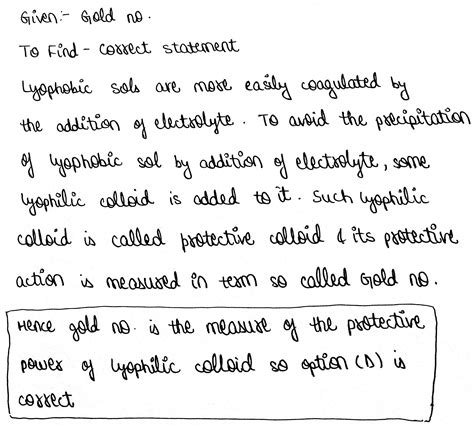 Given:- Gold no.
To Find - correct statement
Lyophobic sols are more easily coagulated by
the addition of electrolyte. To avoid the precipitation
of lyophobic sol by addition of electrolyte, some
lyophilic colloid is added to it. Such lyophilic
colloid is called protective colloid & its protective
action is measured in term so called Gold no.
Hence gold no. is the measure of the protective
power of lyophilic colloid so option (D) is
correct